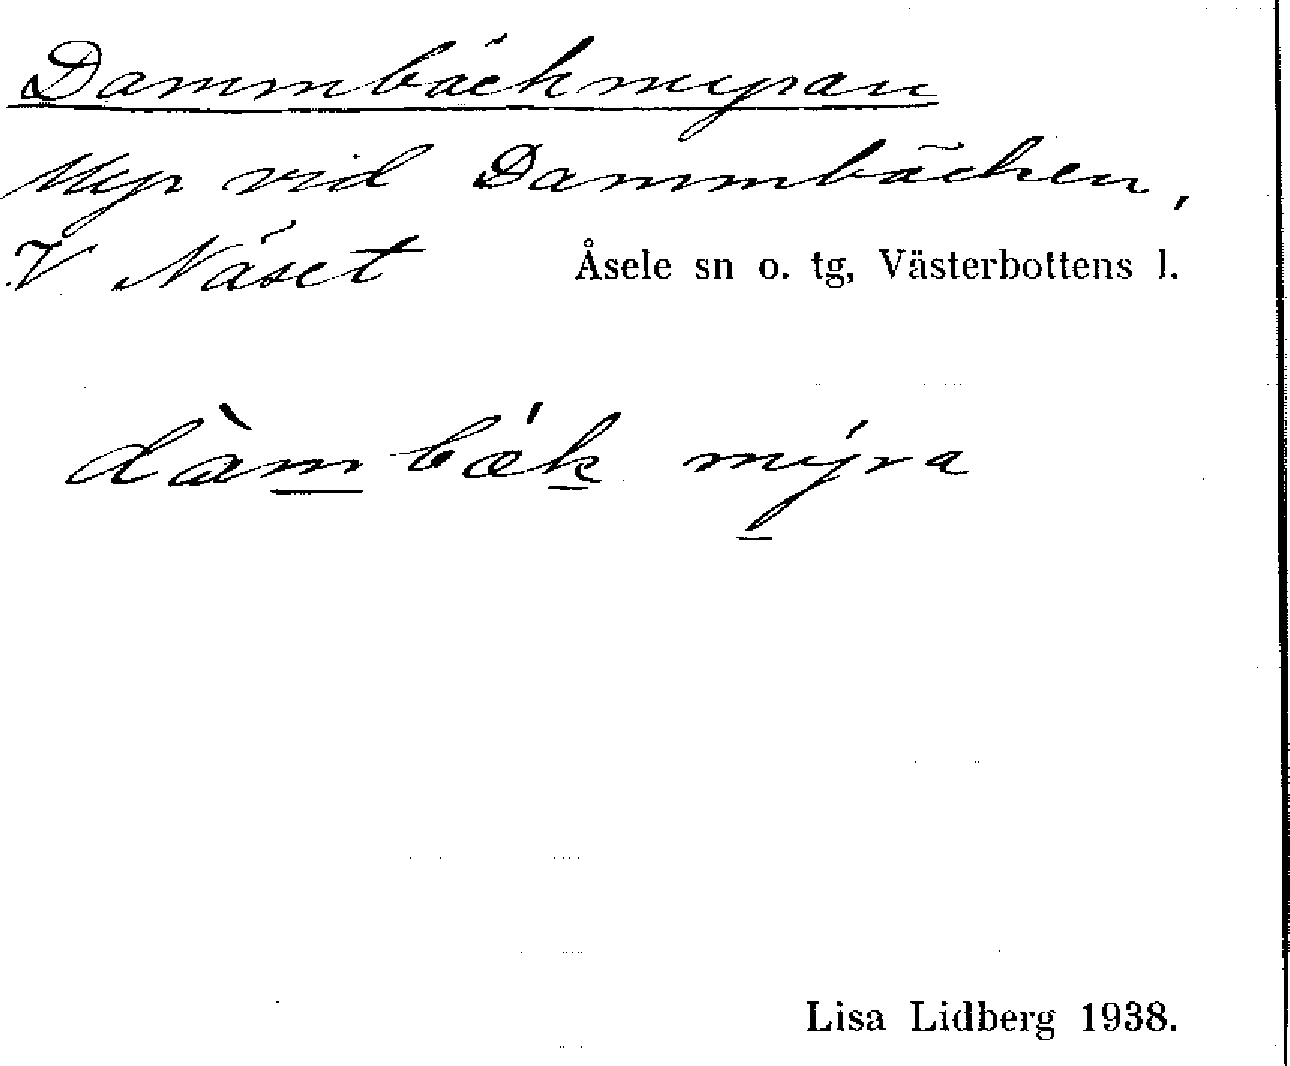 Dammbäckmyran
Myr vid Dammbäcken,
V Näset Åsele sn o. tg, Västerbottens l.
dàmbǽk mýra
Lisa Lidberg 1938.